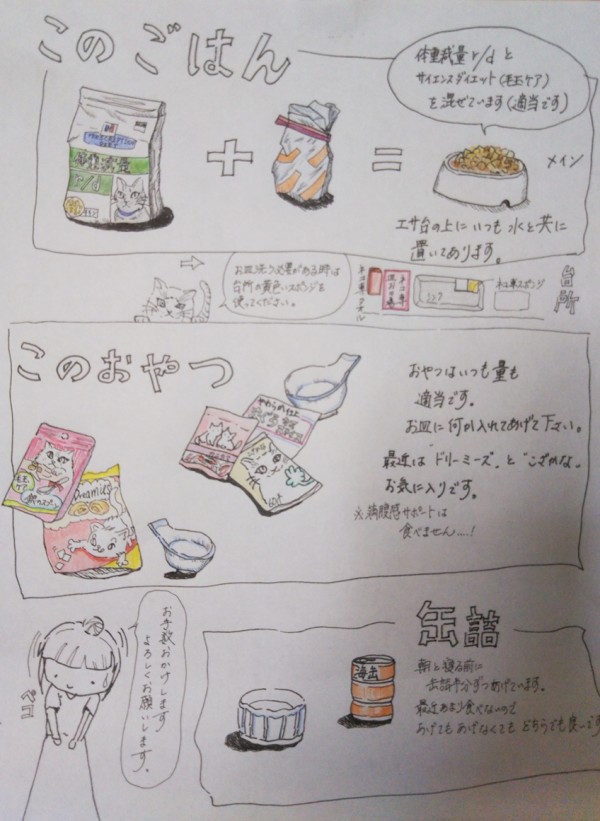 このごはん
体重減量 r/d と
サイエンスダイエット(毛玉ケア)
を混ぜています(適当です)
PRESCRIPTION
DIET
体重減量
r/d
メイン
エサ台の上にいつも水と共に
置いてあります。
お皿洗う必要がある時は
台所の黄色いスポンジを
使ってください。
ネコ専用
ネコ専用スポンジ
台所
このおやつ
おやつはいつも量も
適当です。
お皿に何か入れてあげて下さい。
最近は"ドリーミーズ"と"こざかな"
お気に入りです。
※満腹感サポートは
食べません....!
やわらめ仕立
毛玉
ケア
Dreamies
お手数おかけします
よろしくお願いします。
ペコ
缶詰
海缶
朝と寝る前に
缶詰半分ずつあげています。
最近あまり食べないので
あげてもあげなくてもどちらでも良いです